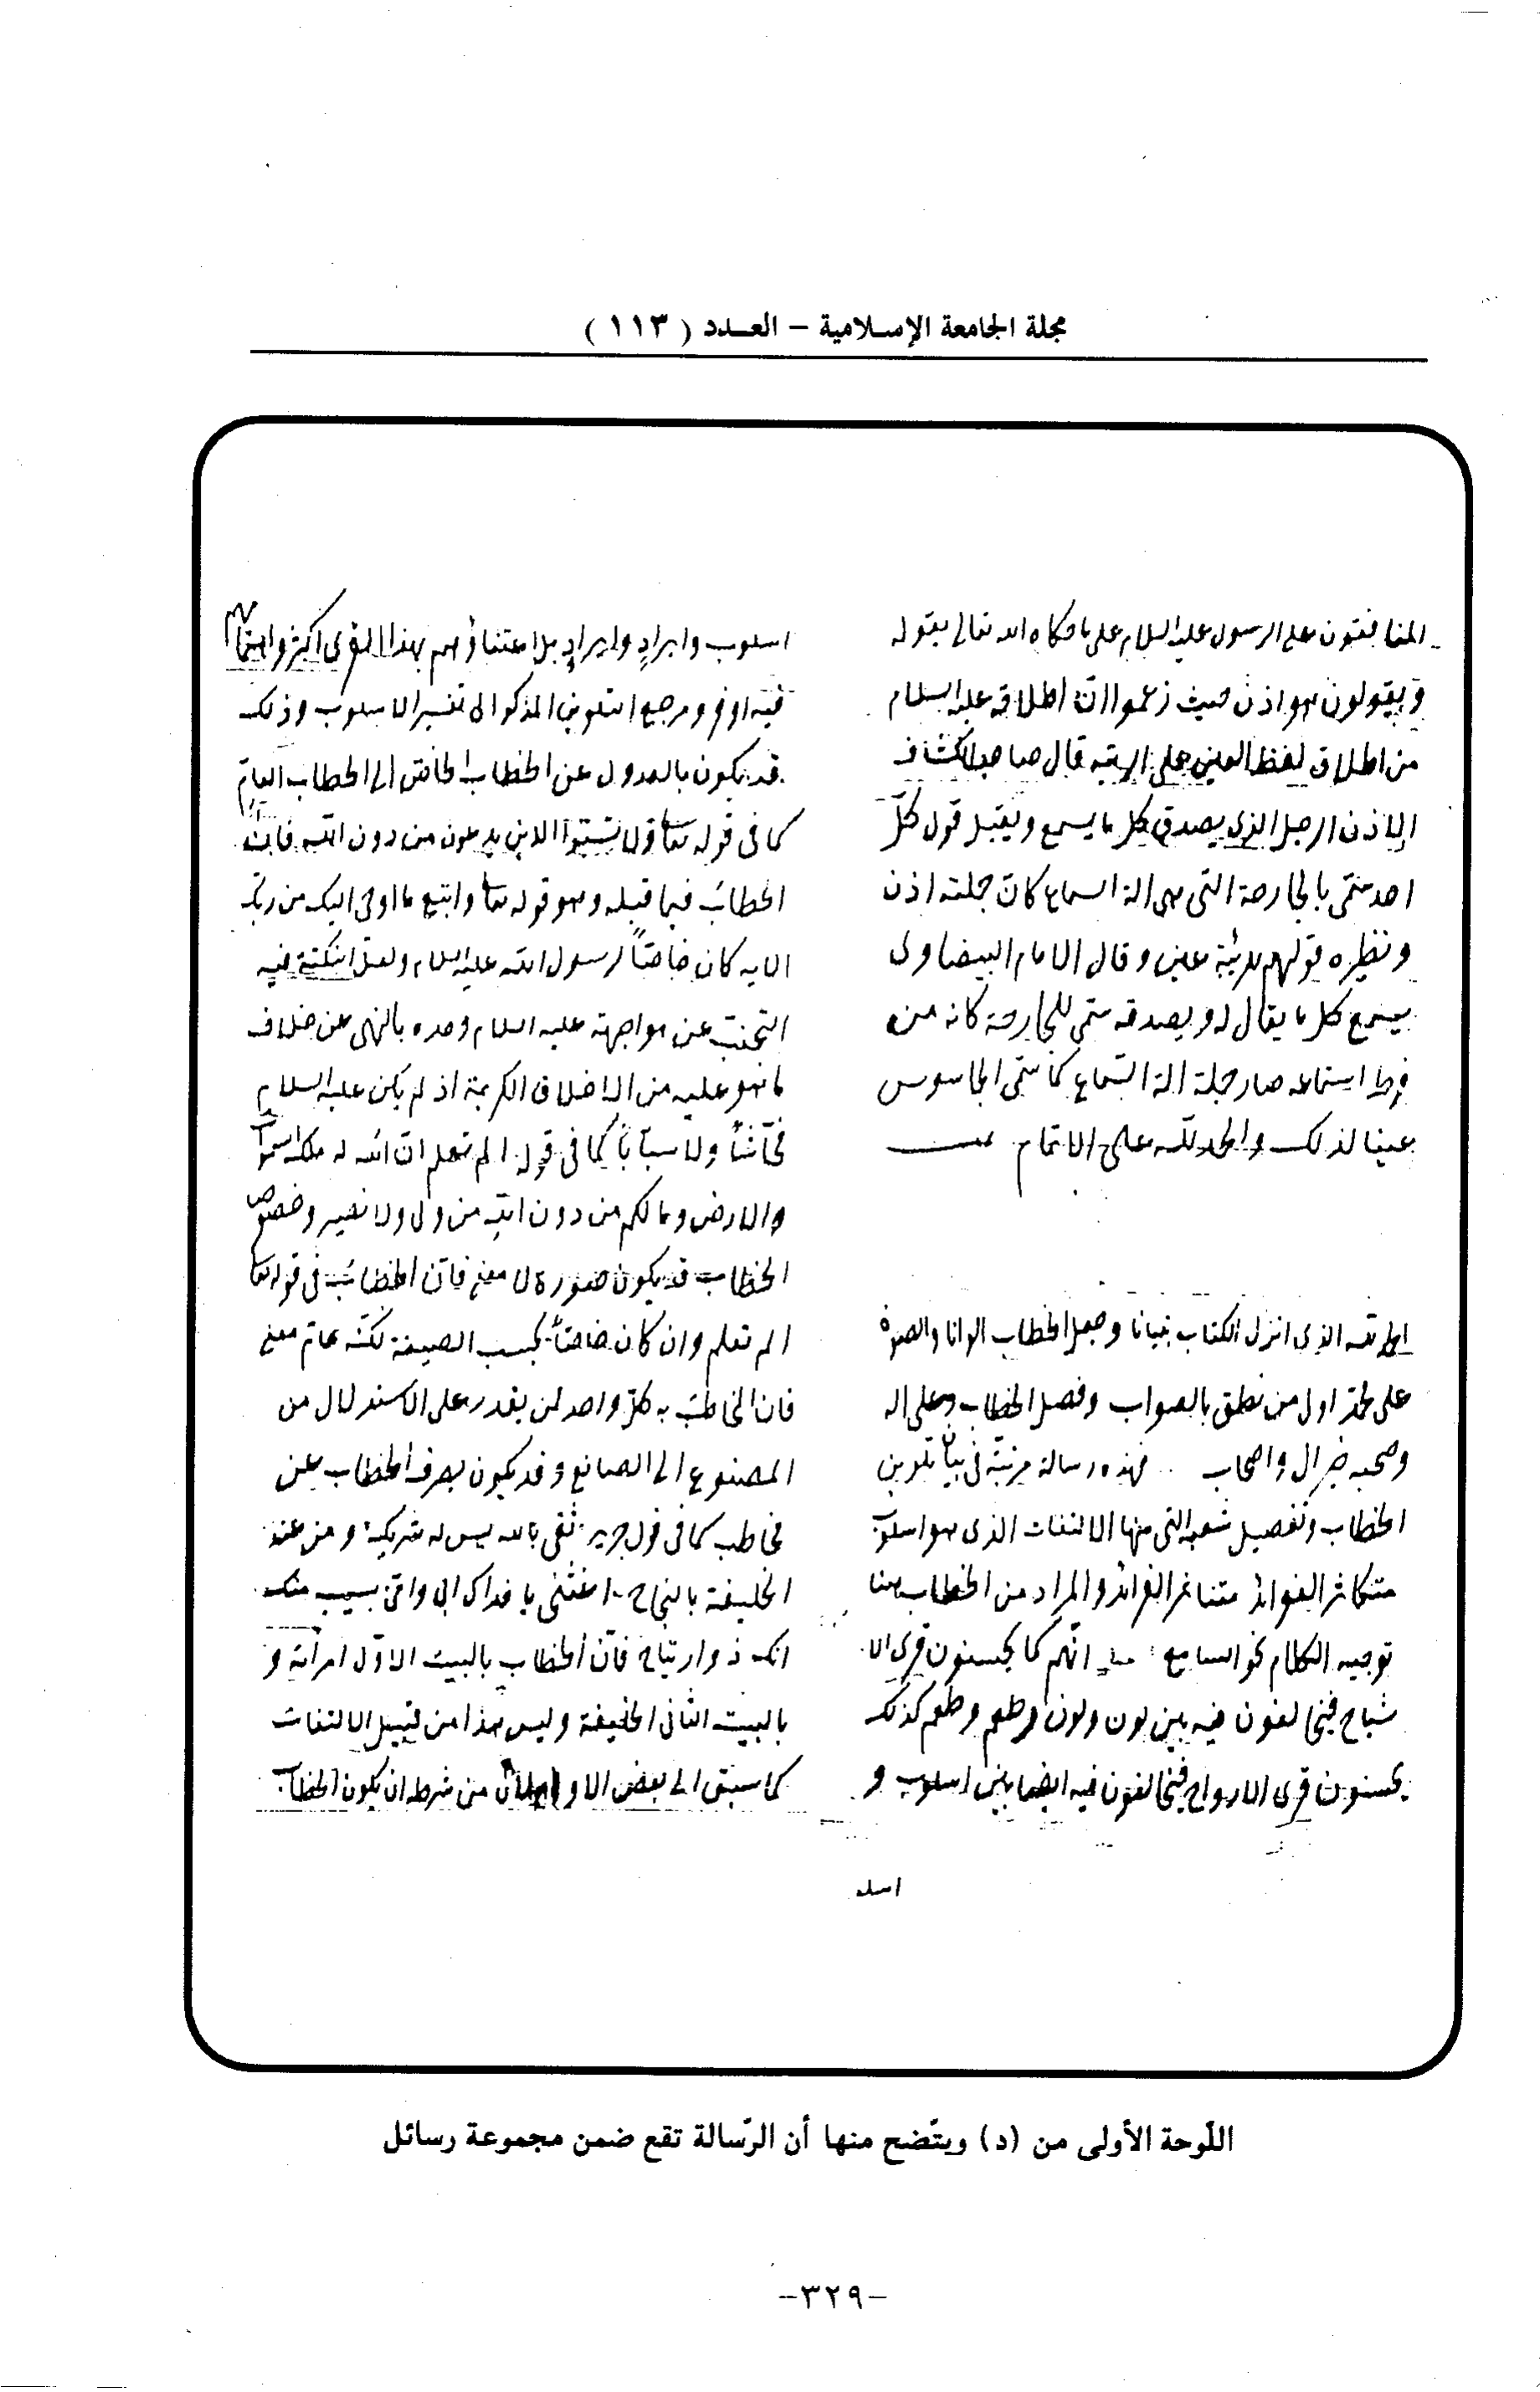 مجلة الجامعة الإسلامية – العدد ( ١١٣ )
المنافقون على الرسول عليه السلام على ما حكاه الله تعالى بقوله
ويقولون هو اذن حيث زعموا ان اطلاقه عليه السلام
من اطلاق لفظ العين على قال صاحب الكشاف
الاذن الرجل الذى يصدق كل ما يسمع ويقبل قول كلّ
احد سمّى بالجارحة التى هى الة السماع كان جملته اذن
ونظيره قولهم للربيئة عين وقال الامام البيضاوى
يسمع كل ما يقال له ويصدقه سمّى للجارحة كانه من
فرط استماعه صار جملة الة السّماع كما سمّى الجاسوس
عينا لذلك والحمد لله على الاتمام
الحمد لله الذى انزل الكتاب تبيانا وجعل الخطاب الوانا والصلوة
على محمّد اول من نطق بالصواب وفصل الخطاب وعلى اله
وصحبه خير ال واصحاب فهذه رسالة مرتبة فى بيان تلوين
الخطاب وتفصيل شعبه التى منها الالتفات الذى هو اسلوب
متكاثر الفوائد متناثر الفرائد والمراد من الخطاب هنا
توجيه الكلام نحو السامع انّهم كما يحسنون قرى الا
شباح فيخالفون فيه بين لون ولون وطعم وطعم كذلك
يحسنون قرى الارواح فيخالفون فيه ايضا بين اسلوب و
اسلـ
اسلوب وايرادٍ وايرادٍ بل اعتناؤهم بهذا القرى اكثر واهتمامهم
فيه اوفر ومرجع التلوين المذكور الى تغيير الاسلوب وذلك
قد يكون بالعدول عن الخطاب الخاصّ الى الخطاب العامّ
كما فى قوله تعا ولا تسبّوا الذين يدعون من دون الله فانّ
الخطاب فيما قبله وهو قوله تعا واتبع ما اوحى اليك من ربّك
الايه كان خاصّاً لرسول الله عليه السلام ولعل النكتة فيه
التجنّب عن مواجهة عليه السلام وحده بالنهى عن خلاف
ما هو عليه من الاخلاق الكريمة اذ لم يكن عليه السلام
فحّاشاً ولا سبّاباً كما فى قوله الم تعلم انّ الله له ملك السموات
والارض وما لكم من دون الله من ولى ولا نصير وخصوص
الخطاب قد يكون صورة لا معنى فانّ الخطاب فى قوله تعا
الم تعلم وان كان خاصّاً بحسب الصيغة لكنّه عامّ معنى
فان المخاطب به كلّ واحد ممن يقدر على الاستدلال من
المصنوع الى الصانع وقد يكون بصرف الخطاب عن
مخاطب كما فى قول جرير ثقى بالله ليس له شريك ومن عند
الخليفة بالنجاح اغثنى يا فداك ابى وامّى بسيب منك
انك ذو ارتياح فانّ الخطاب بالبيت الاوّل امراته و
بالبيت الثانى الخليفة وليس هذا من قبيل الالتفات
كما سبق الى بعض الاوهام لان من شرطه ان يكون الخطاب
اللّوحة الأولى من (د) ويتّضح منها أن الرّسالة تقع ضمن مجموعة رسائل
–٣٢٩–